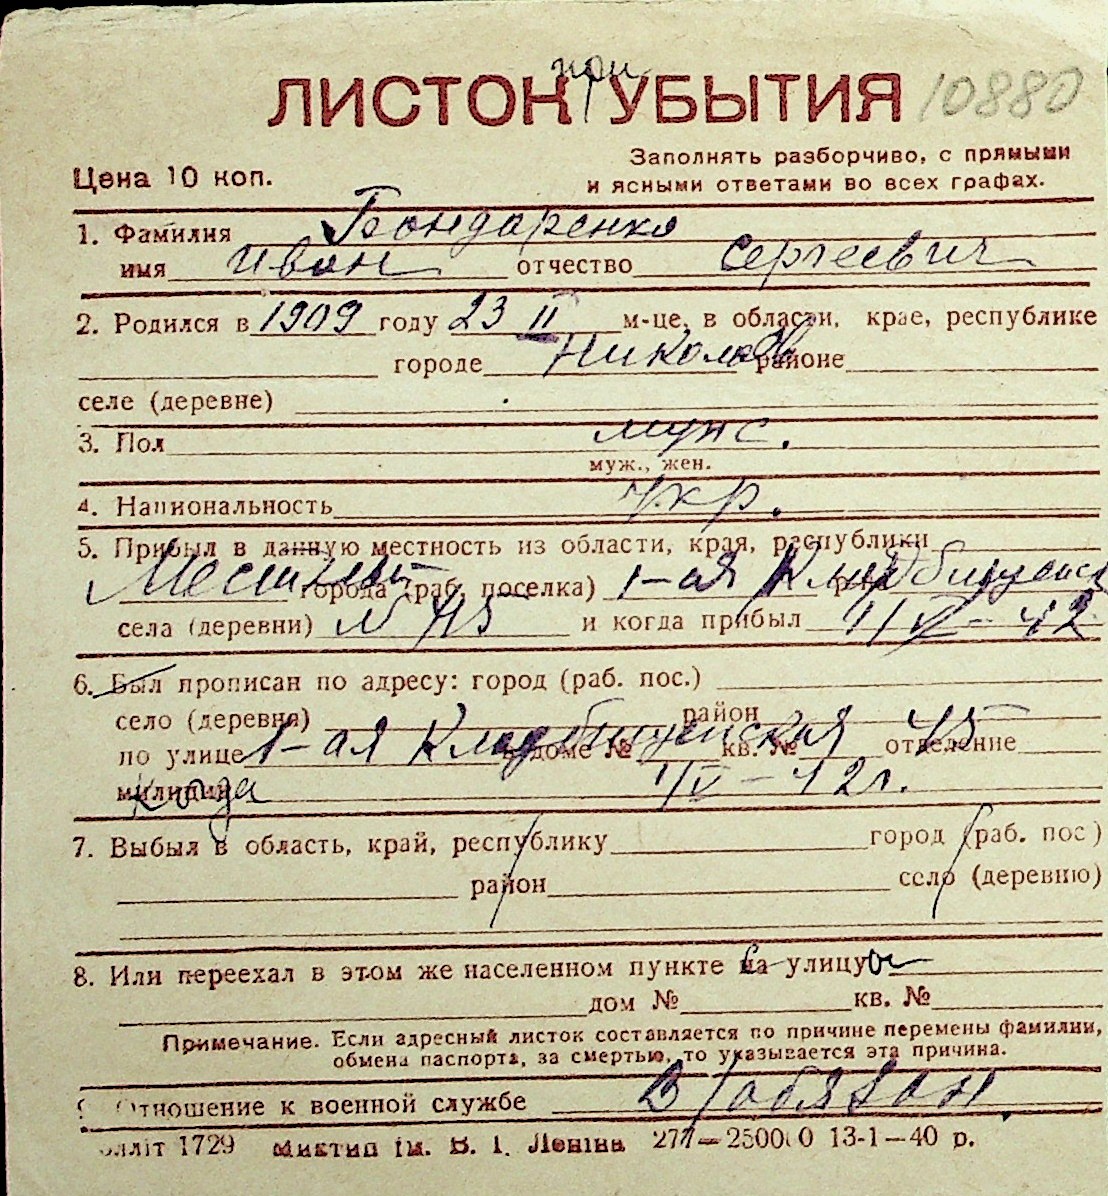 при
ЛИСТОК УБЫТИЯ 10880
Заполнять разборчиво, с прямыми
Цена 10 коп.
и ясными ответами во всех графах.
1. Фамилия Бондаренко
имя Иван отчество Сергеевич
2. Родился в 1909 году 23 II м-це, в области, крае, республике
городе Николаев районе
селе (деревне)
3. Пол муж.
муж., жен.
4. Национальность укр.
5. Прибыл в данную местность из области, края, республики
Местный города (раб. поселка) 1-ая Кладбищенск
села (деревни) № 45 и когда прибыл 1/IV - 42
6. Был прописан по адресу: город (раб. пос.)
село (деревня) район
по улице 1-ая Кладбищенская 45 в доме № кв. № отделение
милиции когда 1/IV - 42 г.
7. Выбыл в область, край, республику город (раб. пос)
район село (деревню)
8. Или переехал в этом же населенном пункте с улицы
дом № кв. №
Примечание. Если адресный листок составляется по причине перемены фамилии,
обмена паспорта, за смертью, то указывается эта причина.
9. Отношение к военной службе В/обязан.
лліт 1729 Миктип ім. В. І. Леніна 277—25000 13-1—40 р.